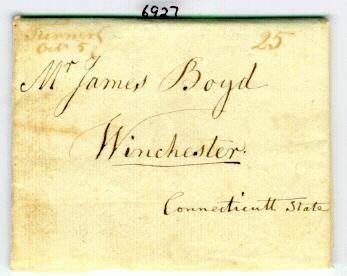 6927
Octr 5
25
Mr James Boyd
Winchester.
Connecticutt State